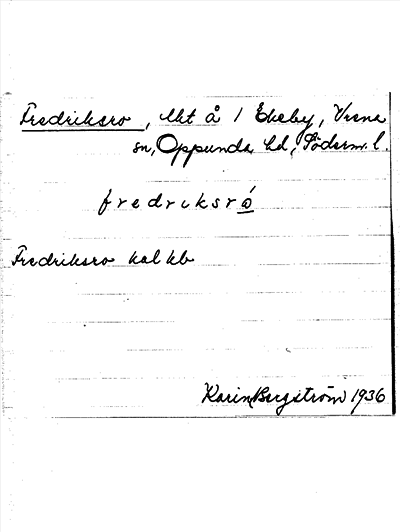 Fredriksro, lht å 1 Ekeby, Vrena
sn, Oppunda hd, Söderm. l.
fredriksró
Fredriksro hal kb
Karin Bergström 1936